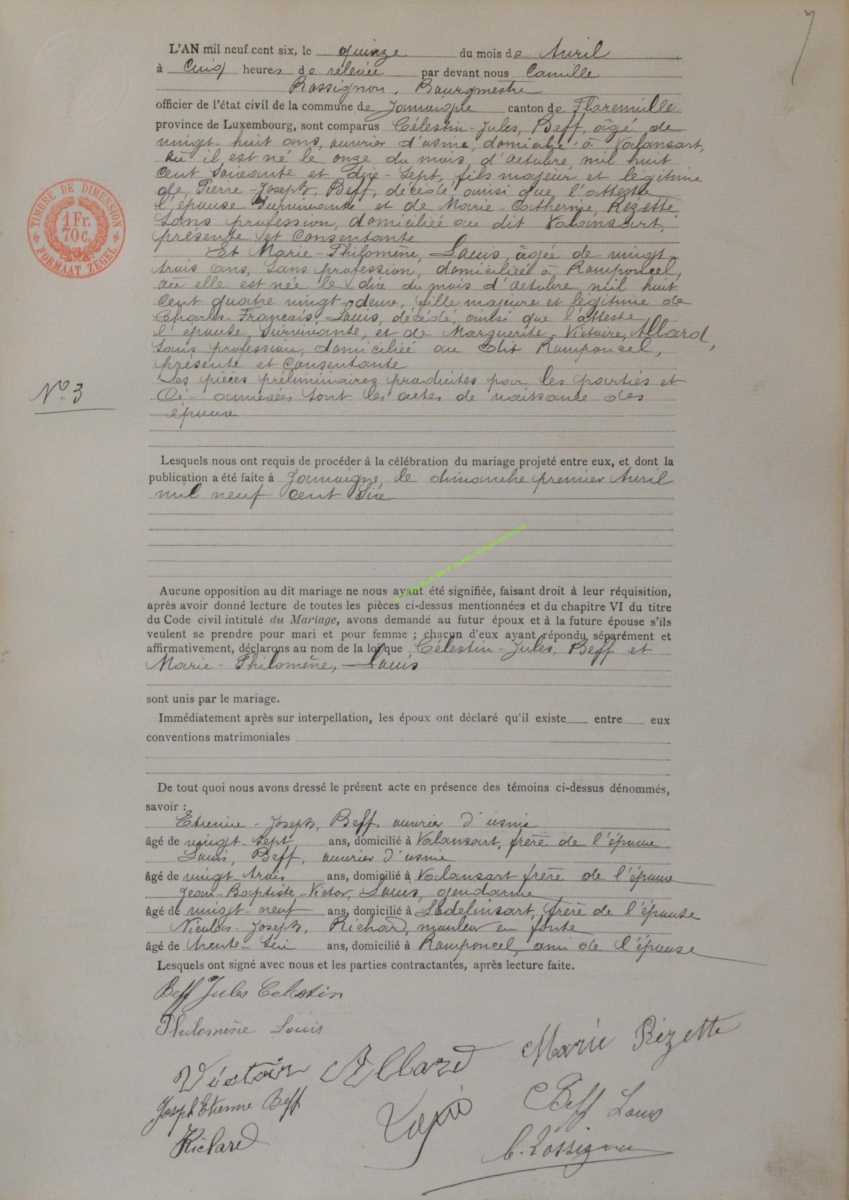 7
L'AN mil neuf cent six, le quinze du mois de Avril
à Cinq heures de relevée par devant nous Camille
Rossignon, Bourgmestre
officier de l'état civil de la commune de Jamoigne canton de Florenville
province de Luxembourg, sont comparus Célestin-Jules, Beff, âgé de
vingt huit ans, ouvrier d'usine, domicilié à Valansart,
où il est né le onze du mois d'Octobre, mil huit
Cent Soixante et dix-Sept, fils majeur et légitime
de Pierre-Joseph, Beff, décédé ainsi que l'atteste
l'épouse Survivante et de Marie-Catherine, Rézette,
Sans profession, domiciliée au dit Valansart,
présente et Consentante
Et Marie-Philomène, Louis, âgée de vingt
trois ans, Sans profession, domiciliée à Romponcel,
où elle est née le dix du mois d'Octobre mil huit
Cent quatre vingt deux, fille majeure et légitime de
Charles-Français, Louis, décédé, ainsi que l'atteste
l'épouse, Survivante, et de Marguerite-Victoire, Allard,
Sans profession, domiciliée au dit Romponcel,
présente et Consentante
Les pièces préliminaires produites par les parties et
Ci-annexées sont les actes de naissance des
époux
TIMBRE DE DIMENSION
1 Fr.
70 c.
FORMAAT ZEGEL
N° 3
Lesquels nous ont requis de procéder à la célébration du mariage projeté entre eux, et dont la
publication a été faite à Jamoigne, le dimanche premier Avril
mil neuf cent Six
Aucune opposition au dit mariage ne nous ayant été signifiée, faisant droit à leur réquisition,
après avoir donné lecture de toutes les pièces ci-dessus mentionnées et du chapitre VI du titre
du Code civil intitulé du Mariage, avons demandé au futur époux et à la future épouse s'ils
veulent se prendre pour mari et pour femme ; chacun d'eux ayant répondu séparément et
affirmativement, déclarons au nom de la loi que Célestin-Jules, Beff et
Marie-Philomène, Louis
sont unis par le mariage.
Immédiatement après sur interpellation, les époux ont déclaré qu'il existe entre eux
conventions matrimoniales
De tout quoi nous avons dressé le présent acte en présence des témoins ci-dessus dénommés,
savoir :
Etienne-Joseph, Beff, ouvrier d'usine
âgé de vingt-sept ans, domicilié à Valansart, frère de l'époux
Louis, Beff, ouvrier d'usine
âgé de vingt trois ans, domicilié à Valansart frère de l'époux
Jean-Baptiste-Victor, Louis, gendarme
âgé de vingt-neuf ans, domicilié à Lodelinsart, frère de l'épouse
Nicolas-Joseph, Richard, mouleur en fonte
âgé de trente-Six ans, domicilié à Romponcel, ami de l'épouse
Lesquels ont signé avec nous et les parties contractantes, après lecture faite.
Beff Jules Celestin
Philomène Louis
Victoire Allard Marie Rézette
Joseph Etienne Beff Louis Beff Louis
Richard C. Rossignon